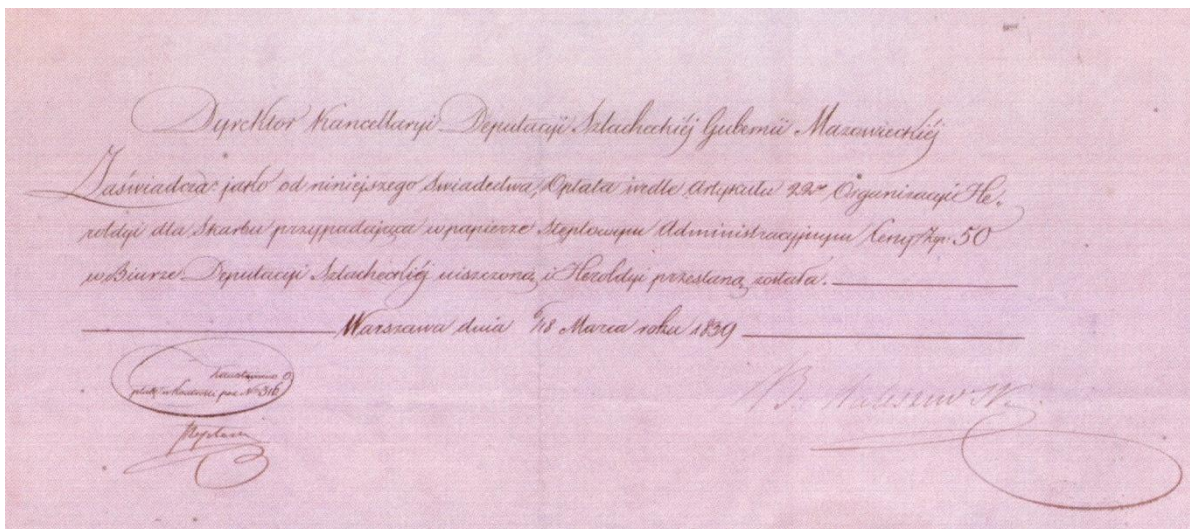 Dyrektor Kancellaryi Deputacyi Szlacheckiéj Gubernii Mazowieckiéj
Zaświadcza: jako od niniejszego Swiadectwa, Opłata wedle Artykułu 22go Organizacyi He-
roldyi dla Skarbu przypadająca w papierze Stęplowym Administracyjnym Ceny Złp. 50
w Biurze Deputacyi Szlacheckiéj uiszczoną i Heroldyi przesłaną została.
Warszawa dnia 6/18 Marca roku 1839
poz. No 316